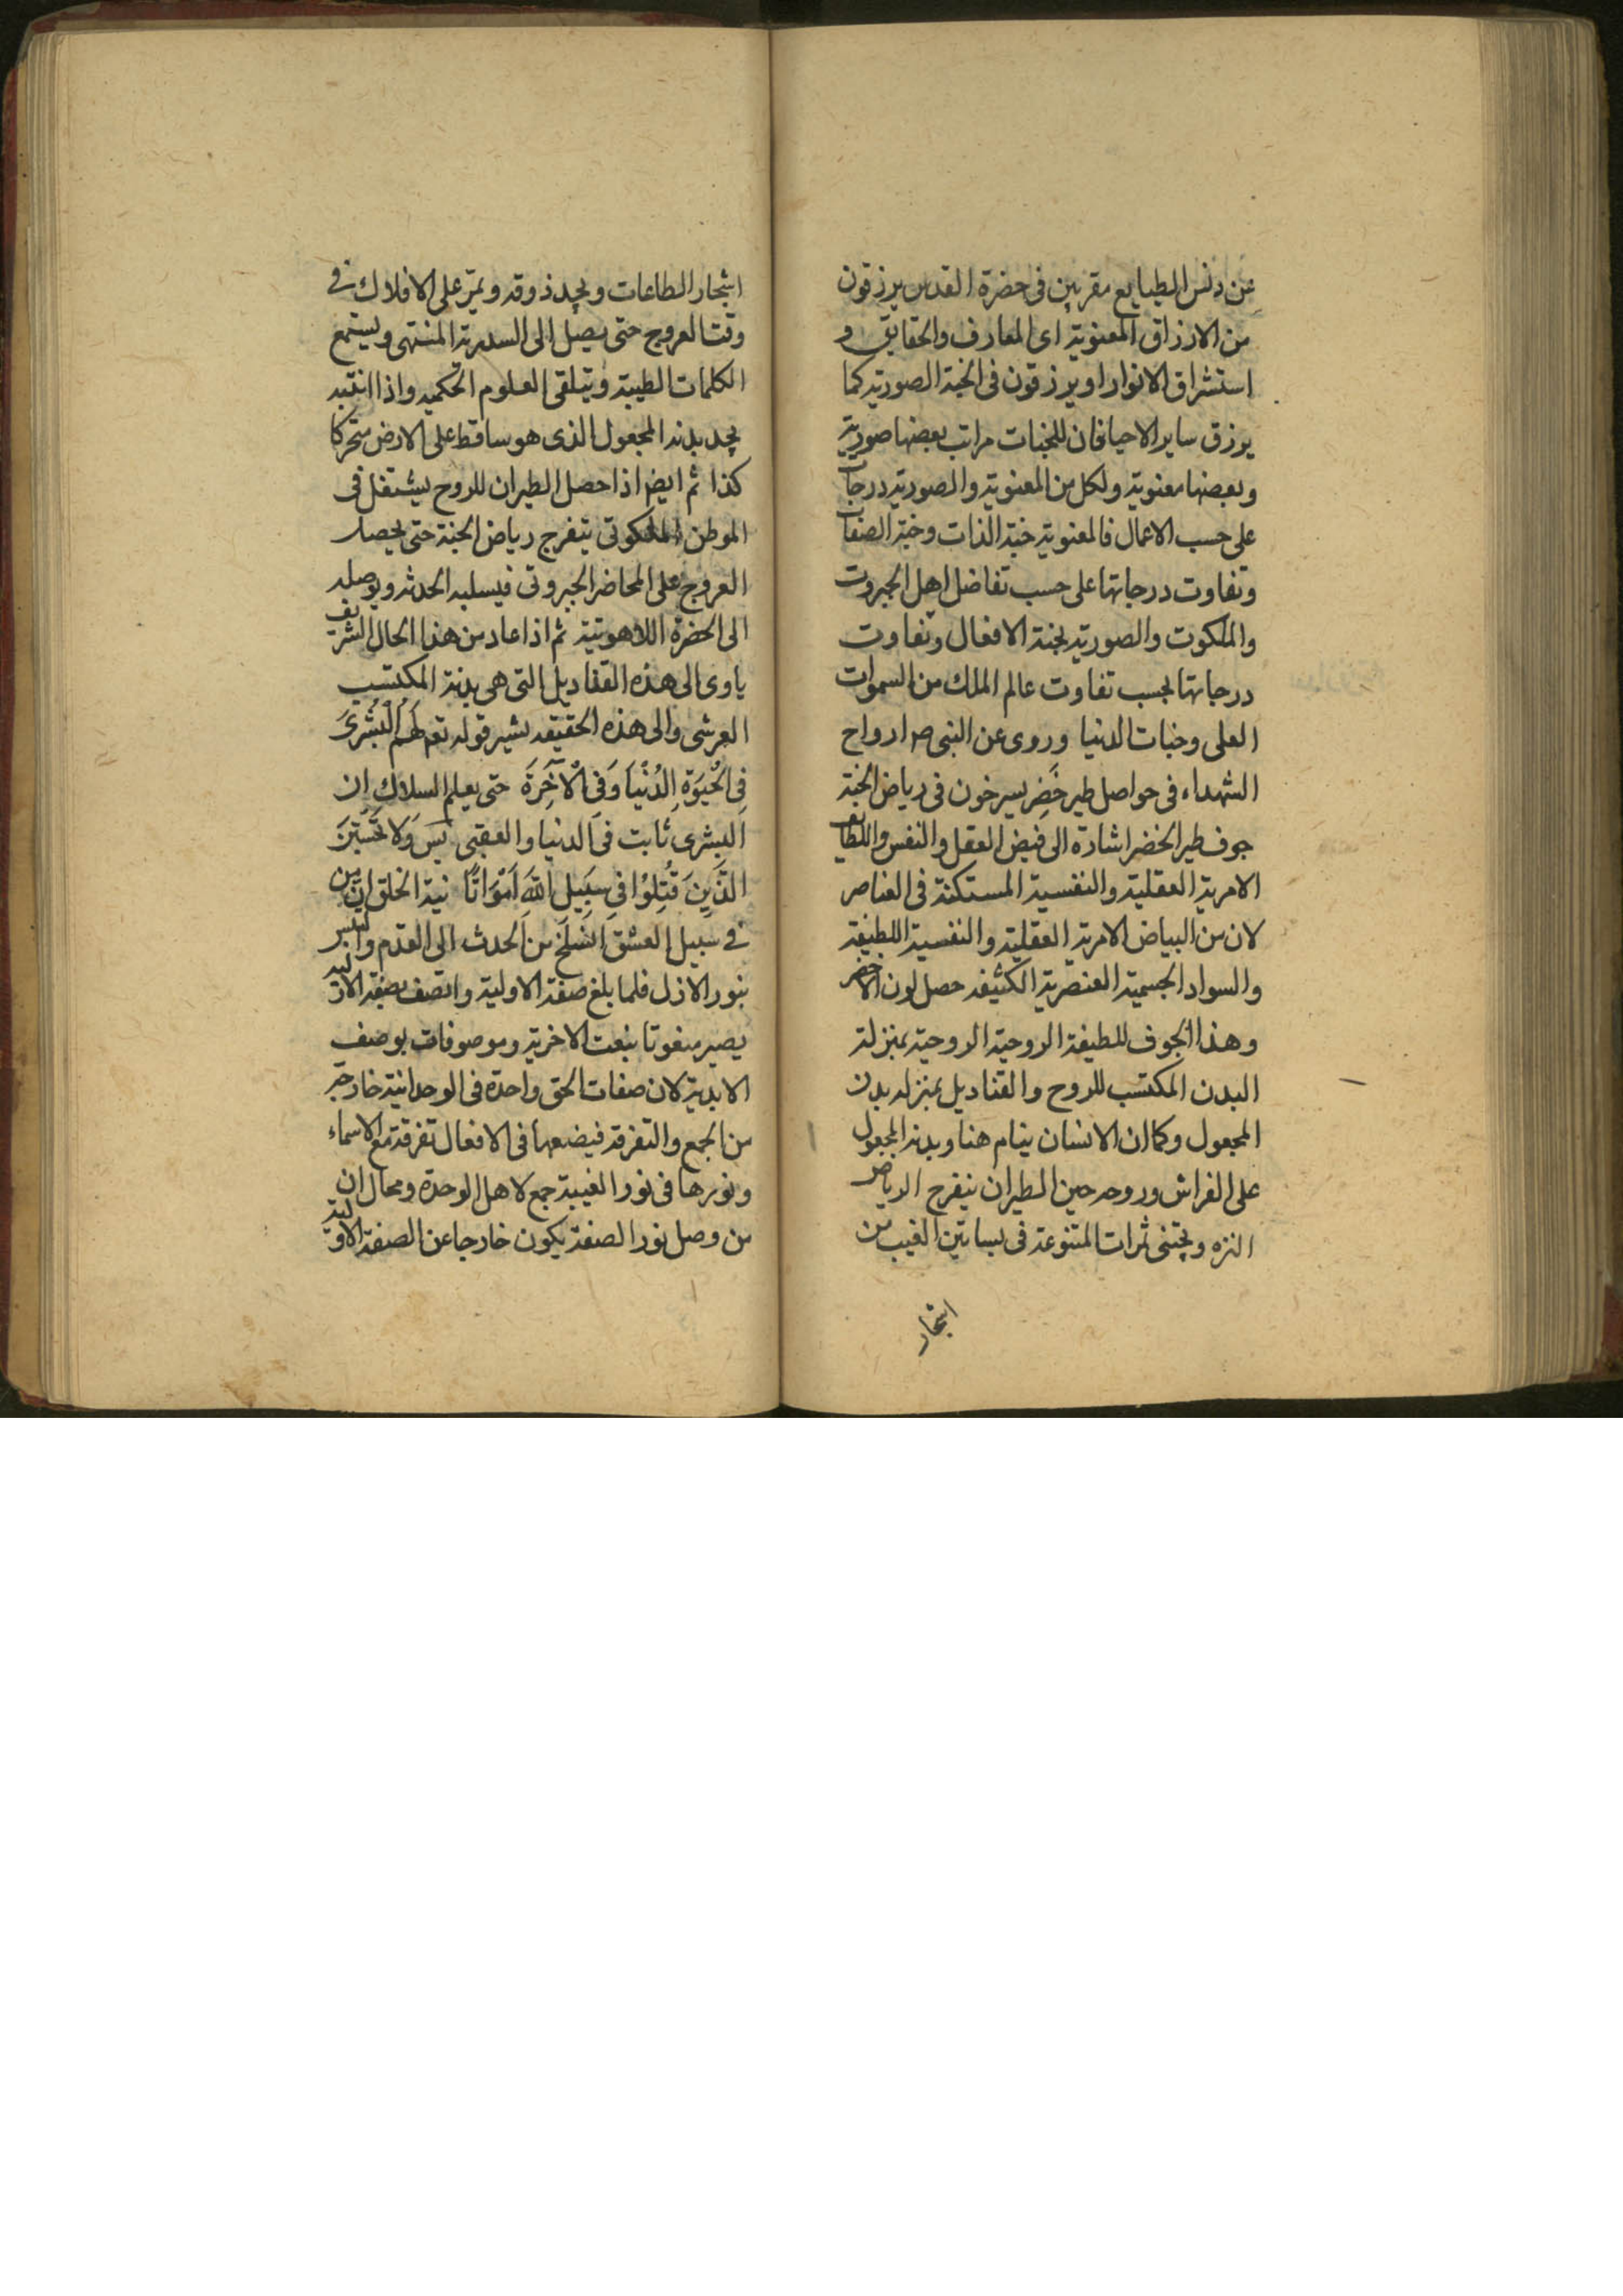 عن دنس الطبايع مقربين فى حضرة القدس يرزقون
من الارزاق المعنوية اى المعارف والحقايق و
استشراق الانوار او يرزقون فى الجنة الصورية كما
يرزق ساير الاحيا فان للجنات مراتب بعضها صورية
وبعضها معنوية ولكل من المعنوية والصورية درجات
على حسب الاعمال فالمعنوية جنة الذات وجنة الصفات
وتفاوت درجاتها على حسب تفاضل اهل الجبروت
والملكوت والصورية جنة الافعال وتفاوت
درجاتها بحسب تفاوت عالم الملك من السموات
العلى وجنات الدنيا وروى عن النبى ص ارواح
الشهداء فى حواصل طير خضر يسرخون فى رياض الجنة
جوف طير الخضر اشارة الى فيض العقل والنفس واللطايف
الامرية العقلية والنفسية المستكنة فى العناصر
لان من البياض الامرية العقلية والنفسية اللطيفة
والسواد الجسمية العنصرية الكثيفة حصل لون الاخضر
وهذا الجوف للطيفة الروحية الروحية بمنزلة
البدن المكتسب للروح والقناديل بمنزله بدن
المجعول وكما ان الانسان ينام هنا وبدنه المجعول
على الفراش وروحه حين الطيران يتفرج الرياض
النزه ويجتنى ثمرات المتنوعة فى بساتين الغيب من
اشجار
اشجار الطاعات ويجد ذوقه ويمرّ على الافلاك فى
وقت العروج حتى يصل الى السدرة المنتهى ويستمع
الكلمات الطيبة ويتلقى العلوم الحكميه واذا انتبه
يجد بدنه المجعول الذى هو ساقط على الارض متحركا
كذا ثم ايض اذا حصل الطيران للروح يشتغل فى
الموطن الملكوتى يتفرج رياض الجنة حتى يحصل
العروج على المحاضر الجبروتى فيسلبه الحدثه ويوصله
الى الحضرة اللاهوتية ثم اذا عاد من هذا الحال الشريف
ياوى الى هذه القناديل التى هى بدنه المكتسب
العرشى والى هذه الحقيقه تشير قوله تع لَهُمُ الْبُشْرَى
فِى الْحَيَوةِ الدُنْيَا وَفِى الْآخِرَةَ حتى يعلم السلاك ان
البشرى ثابت فى الدنيا والعقبى يس وَلا تَحْسَبَنَ
الَّذَينَ قُتِلوُا فىِ سَبيِلِ اللهَ اَمْوَاتًا نية الخلق ان من
فى سبيل العشق انسلخ من الحدث الى القدم والتبس
بنور الازل فلما بلغ صفة الاولية واتصف بصفة الازلية
يصير منعوتا بنعت الاخرية وموصوفات بوصف
الابدية لان صفات الحق واحدة فى الوحدانية خارجة
من الجمع والتفرقة فيضعها فى الافعال تفرقة مع الاسماء
ونورها فى نور الغيبة جمع لاهل الوحدة ومحال ان
من وصل نور الصفة يكون خارجا عن الصفة الاولية